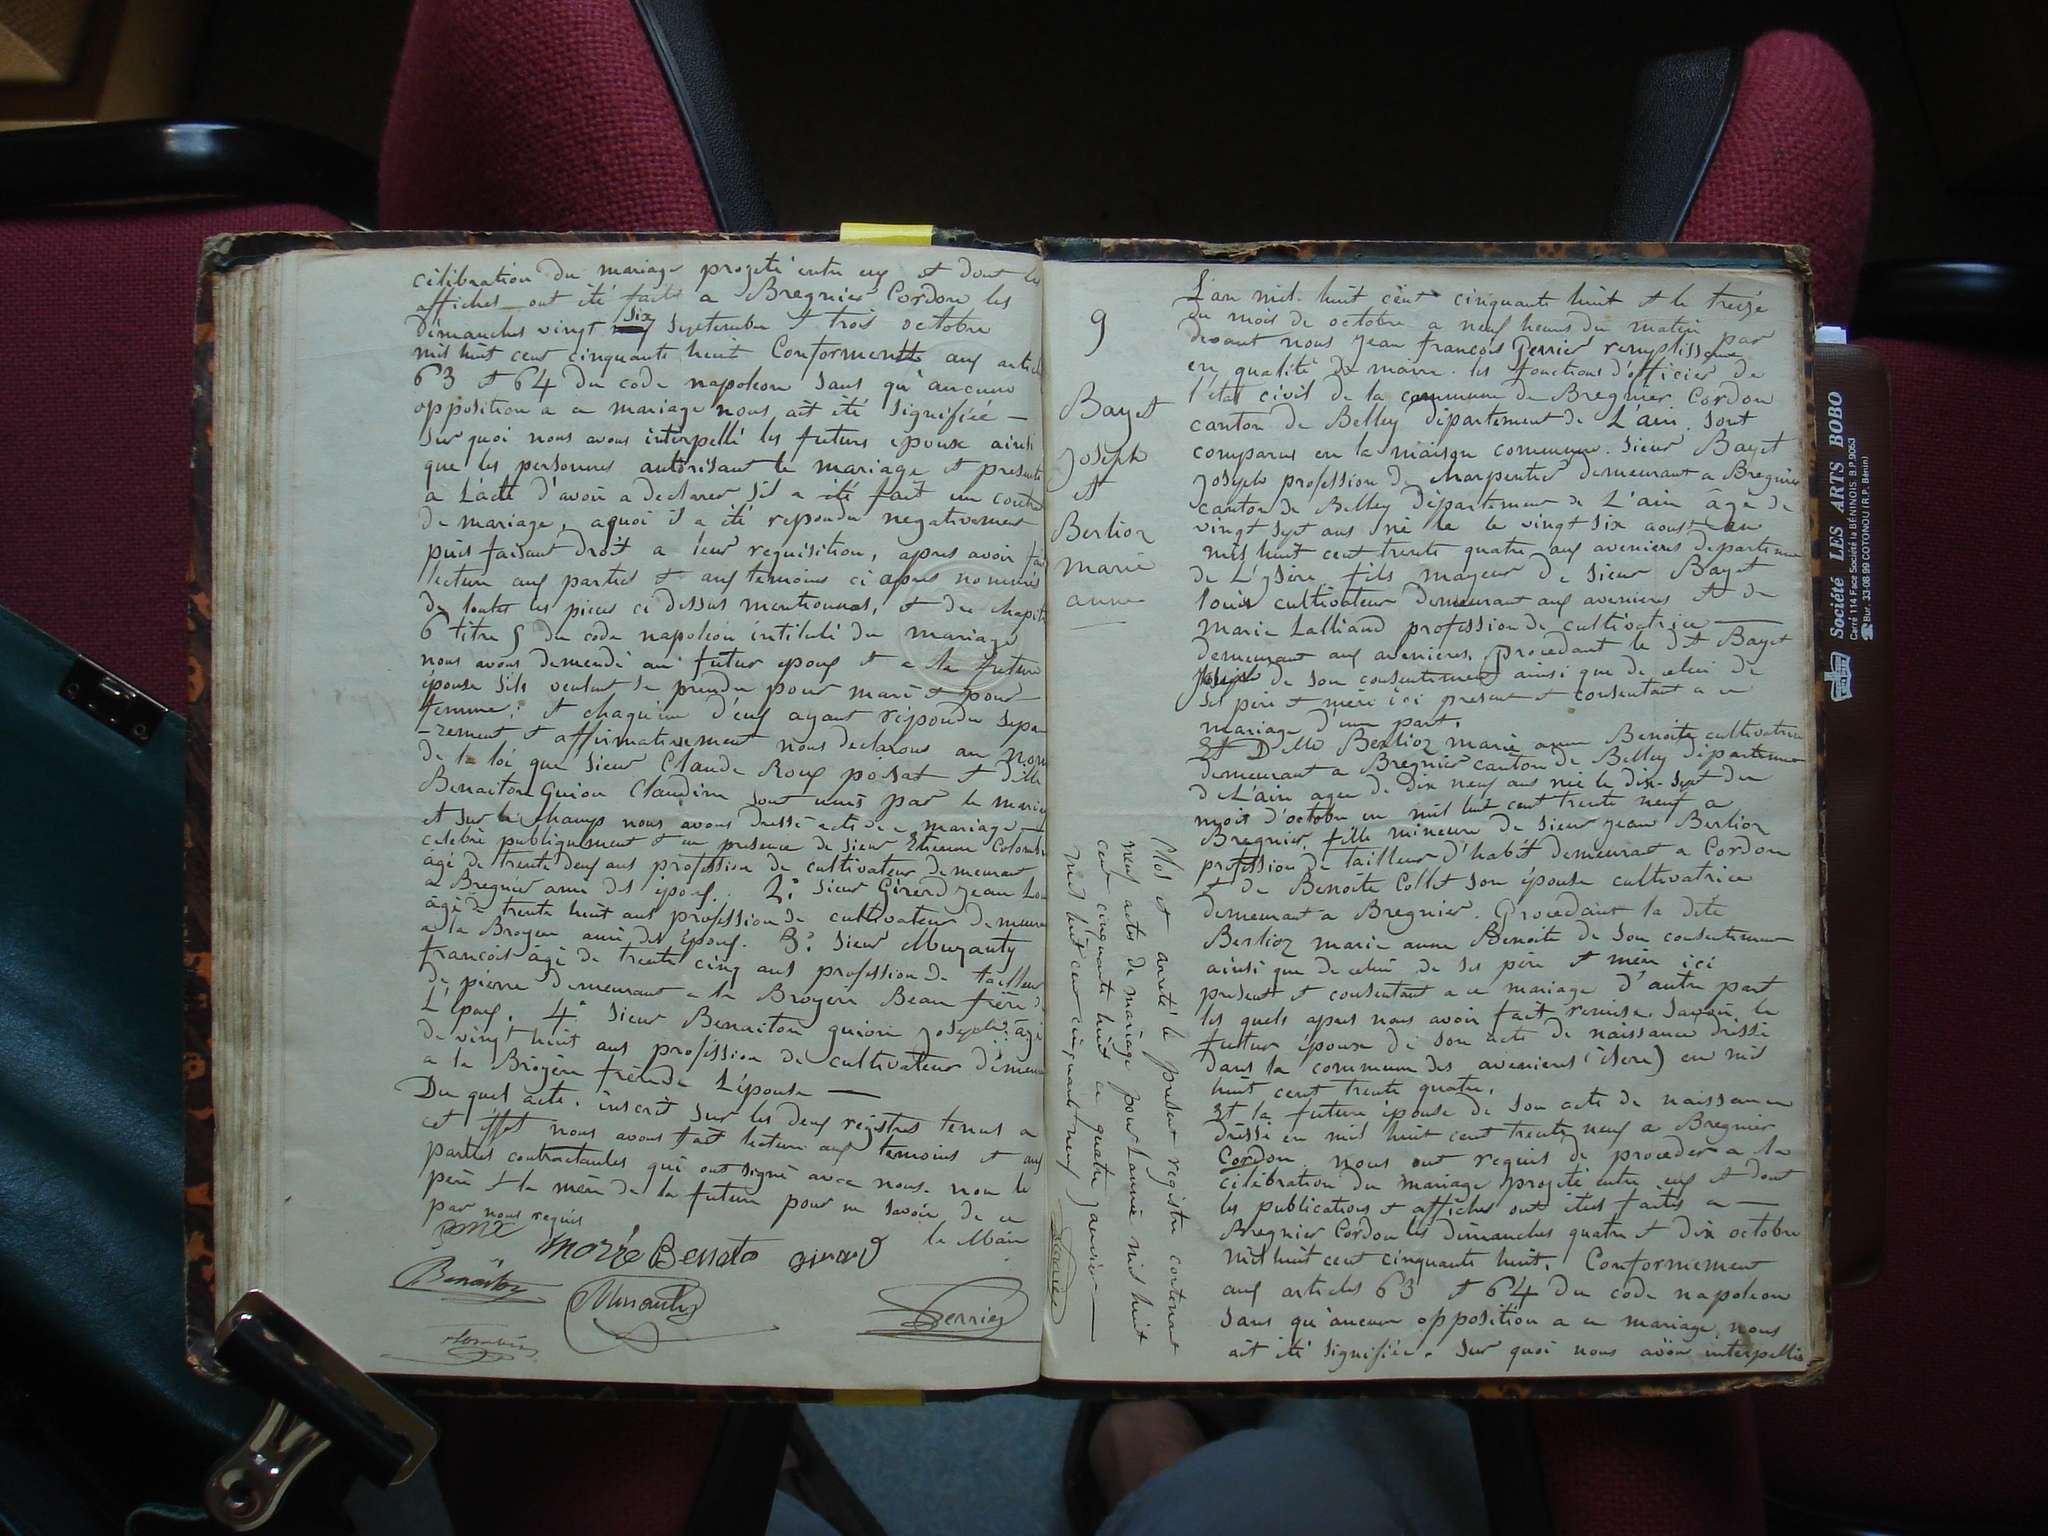 célébration du mariage projeté entre eux et dont les
affiches ont été faites a Bregnier Cordon les
dimanches vingt six septembre et trois octobre
mil huit cent cinquante huit Conformement aux articles
63 et 64 du code napoleon sans qu'aucune
opposition a ce mariage nous ait été signifiée —
sur quoi nous avons interpellé les futurs epoux ainsi
que les personnes autorisant le mariage et presente
a L'acte d'avoir a declarer s'il a été fait un contrat
de mariage, aquoi il a été repondu negativement
puis faisant droit a leur requisition, apres avoir fait
lecture aux parties et aux temoins ci apres nommés
de toutes les pieces ci dessus mentionnés, et du chapitre
6 titre 5 du code napoleon intitulé du mariage
nous avons demendé au futur epoux et a la future
épouse s'ils veulent se prendre pour mari et pour
femme; et chaqu'un d'eux ayant répondu sepa
-rement et affirmativement nous declarons au nom
de la loi que sieur Claude Roux poisat et dlle
Benaiton Guion Claudine sont unis par le mariage
et sur le champ nous avons dressé acte de ce mariage
celebré publiquement et en presence de sieur Etienne Colomb
âgé de trente deux ans profession de cultivateur demeurant
a Bregnier ami des époux. 2° sieur Girerd jean Lou
âgé de trente huit ans profession de cultivateur demeurant
a la Broyere ami des époux. 3° sieur Muzauty
francois âgé de trente cinq ans profession de tailleur
de pierre demeurant a la Broyere Beau frère de
L'époux. 4° sieur Benaiton guion joseph âgé
de vingt huit ans profession de cultivateur demeurant
a la Broyere frère de L'épouse —
Du quel acte. inscrit sur les deux registres tenus a
cet effet nous avons fait lecture aux temoins et aux
parties contractantes qui ont signé avec nous. non le
père et la mère de la future pour ne savoir de ce
par nous requis
le Maire
Benaiton
Perrier
9
Bayet
joseph
et
Berlioz
marie
anne
Clos et arrêté le present registre contenant
neuf actes de mariage pour Lannée mil huit
cent cinquante huit ce quatre janvier —
mil huit cent cinquante neuf
Perrier
L'an mil huit cent cinquante huit et le treize
du mois de octobre a neuf heures du matin par
devant nous jean françois Perrier remplissant
en qualité de maire les fonctions d'officier de
l'etat civil de la commune de Bregnier Cordon
canton de Belley département de L'ain. sont
comparus en la maison commune. sieur Bayet
joseph profession de charpentier demeurant a Bregnier
canton de Belley département de L'ain âgé de
vingt sept ans né le le vingt six aoust en
mil huit cent trente quatre aux avenieres departement
de L'ysère, fils mayeur de sieur Bayet
louis cultivateur demeurant aux avenieres et de
marie Lalliand profession de cultivatrice —
demeurant aux avenieres, procedant le dit Bayet
joseph de son consentement ainsi que de celui de
ses père et mère ici present et consentant a ce
mariage d'une part.
Et Dlle Berlioz marie anne Benoite cultivatrice
demeurant a Bregnier canton de Belley département
de L'ain agee de dix neuf ans née le dix-sept du
mois d'octobre en mil huit cent trente neuf a
Bregnier, fille mineure de sieur jean Berlioz
profession de tailleur d'habit demeurant a Cordon
et de Benoite Collet son épouse cultivatrice
demeurant a Bregnier. Procedant la dite
Berlioz marie anne Benoite de son consentement
ainsi que de celui de ses père et mère ici
present et consentant a ce mariage d'autre part
les quels apres nous avoir fait remise. Savoir, le
futur époux de son acte de naissance dressé
dans la commune des avenieres (isere) en mil
huit cent trente quatre.
Et la future épouse de son acte de naissance
dressé en mil huit cent trente neuf a Bregnier
Cordon. nous ont requis de proceder a la
célébration du mariage projeté entre eux et dont
les publications et affiches ont étés faites a —
Bregnier Cordon les dimanches quatre et dix octobre
mil huit cent cinquante huit. Conformement
aux articles 63 et 64 du code napoleon
sans qu'aucun opposition a ce mariage nous
ait été signifiée. Sur quoi nous avons interpellé
Société LES ARTS BOBO
Carré 114 Face Société la BÉNINOIS B.P. 9053
☎ Bur. 33-08 99 COTONOU (R.P. Bénin)